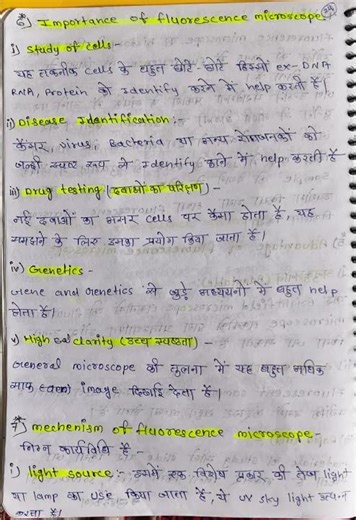 6) Importance of fluorescence microscope
i) Study of cells -
यह तकनीक cells के बहुत छोटे छोटे हिस्सो ex- DNA
RNA, Protein को Identify करने में help करती है।
ii) Disease Identification :-
कैंसर, virus, Bacteria, या अन्य रोगजनकों को
जल्दी स्पष्ट रूप से Identify करने में help करती है
iii) Drug testing (दवाओं का परिक्षण) -
नई दवाओं का असर cells पर कैसा होता है, यह
समझने के लिए इसका प्रयोग किया जाता है।
iv) Genetics -
Gene and Genetics से जुड़े अध्ययनो में बहुत help
होता है।
v) High clarity (उच्च स्पष्टता) -
General microscope की तुलना में यह बहुत अधिक
साफ image दिखाई देता है।
7) mechenism of fluorescence microscope -
निम्न कार्यविधि है -
i) light source :- इसमें एक विशेष प्रकार की तेज light
या lamp का use किया जाता है, ये UV light उत्पन्न
करता है।